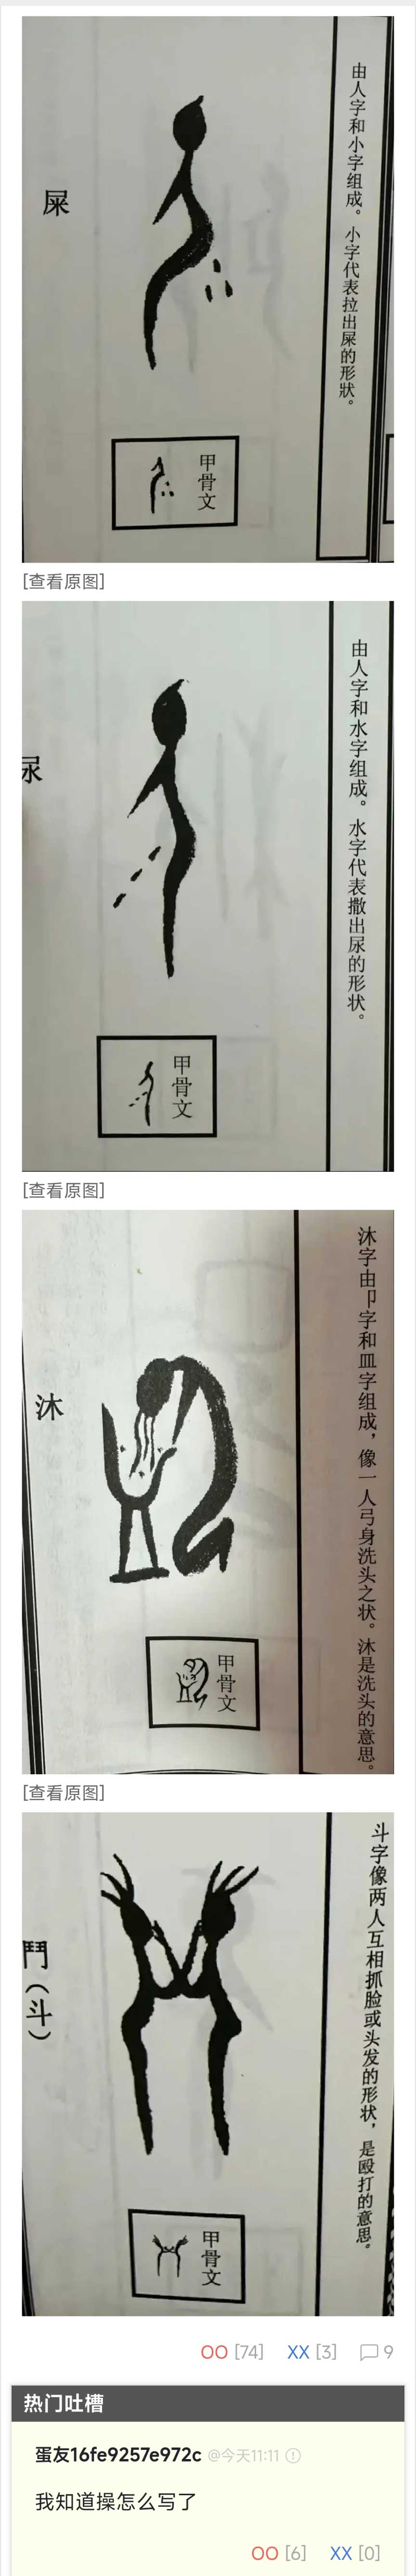 屎
由人字和小字组成。小字代表拉出屎的形狀。
甲骨文
[查看原图]
尿
由人字和水字组成。水字代表撒出尿的形状。
甲骨文
[查看原图]
沐
沐字由卩字和皿字组成，像一人弓身洗头之状。沐是洗头的意思。
甲骨文
[查看原图]
鬥（斗）
斗字像两人互相抓脸或头发的形状，是殴打的意思。
甲骨文
OO [74] XX [3] 9
热门吐槽
蛋友16fe9257e972c @今天11:11
我知道操怎么写了
OO [6] XX [0]